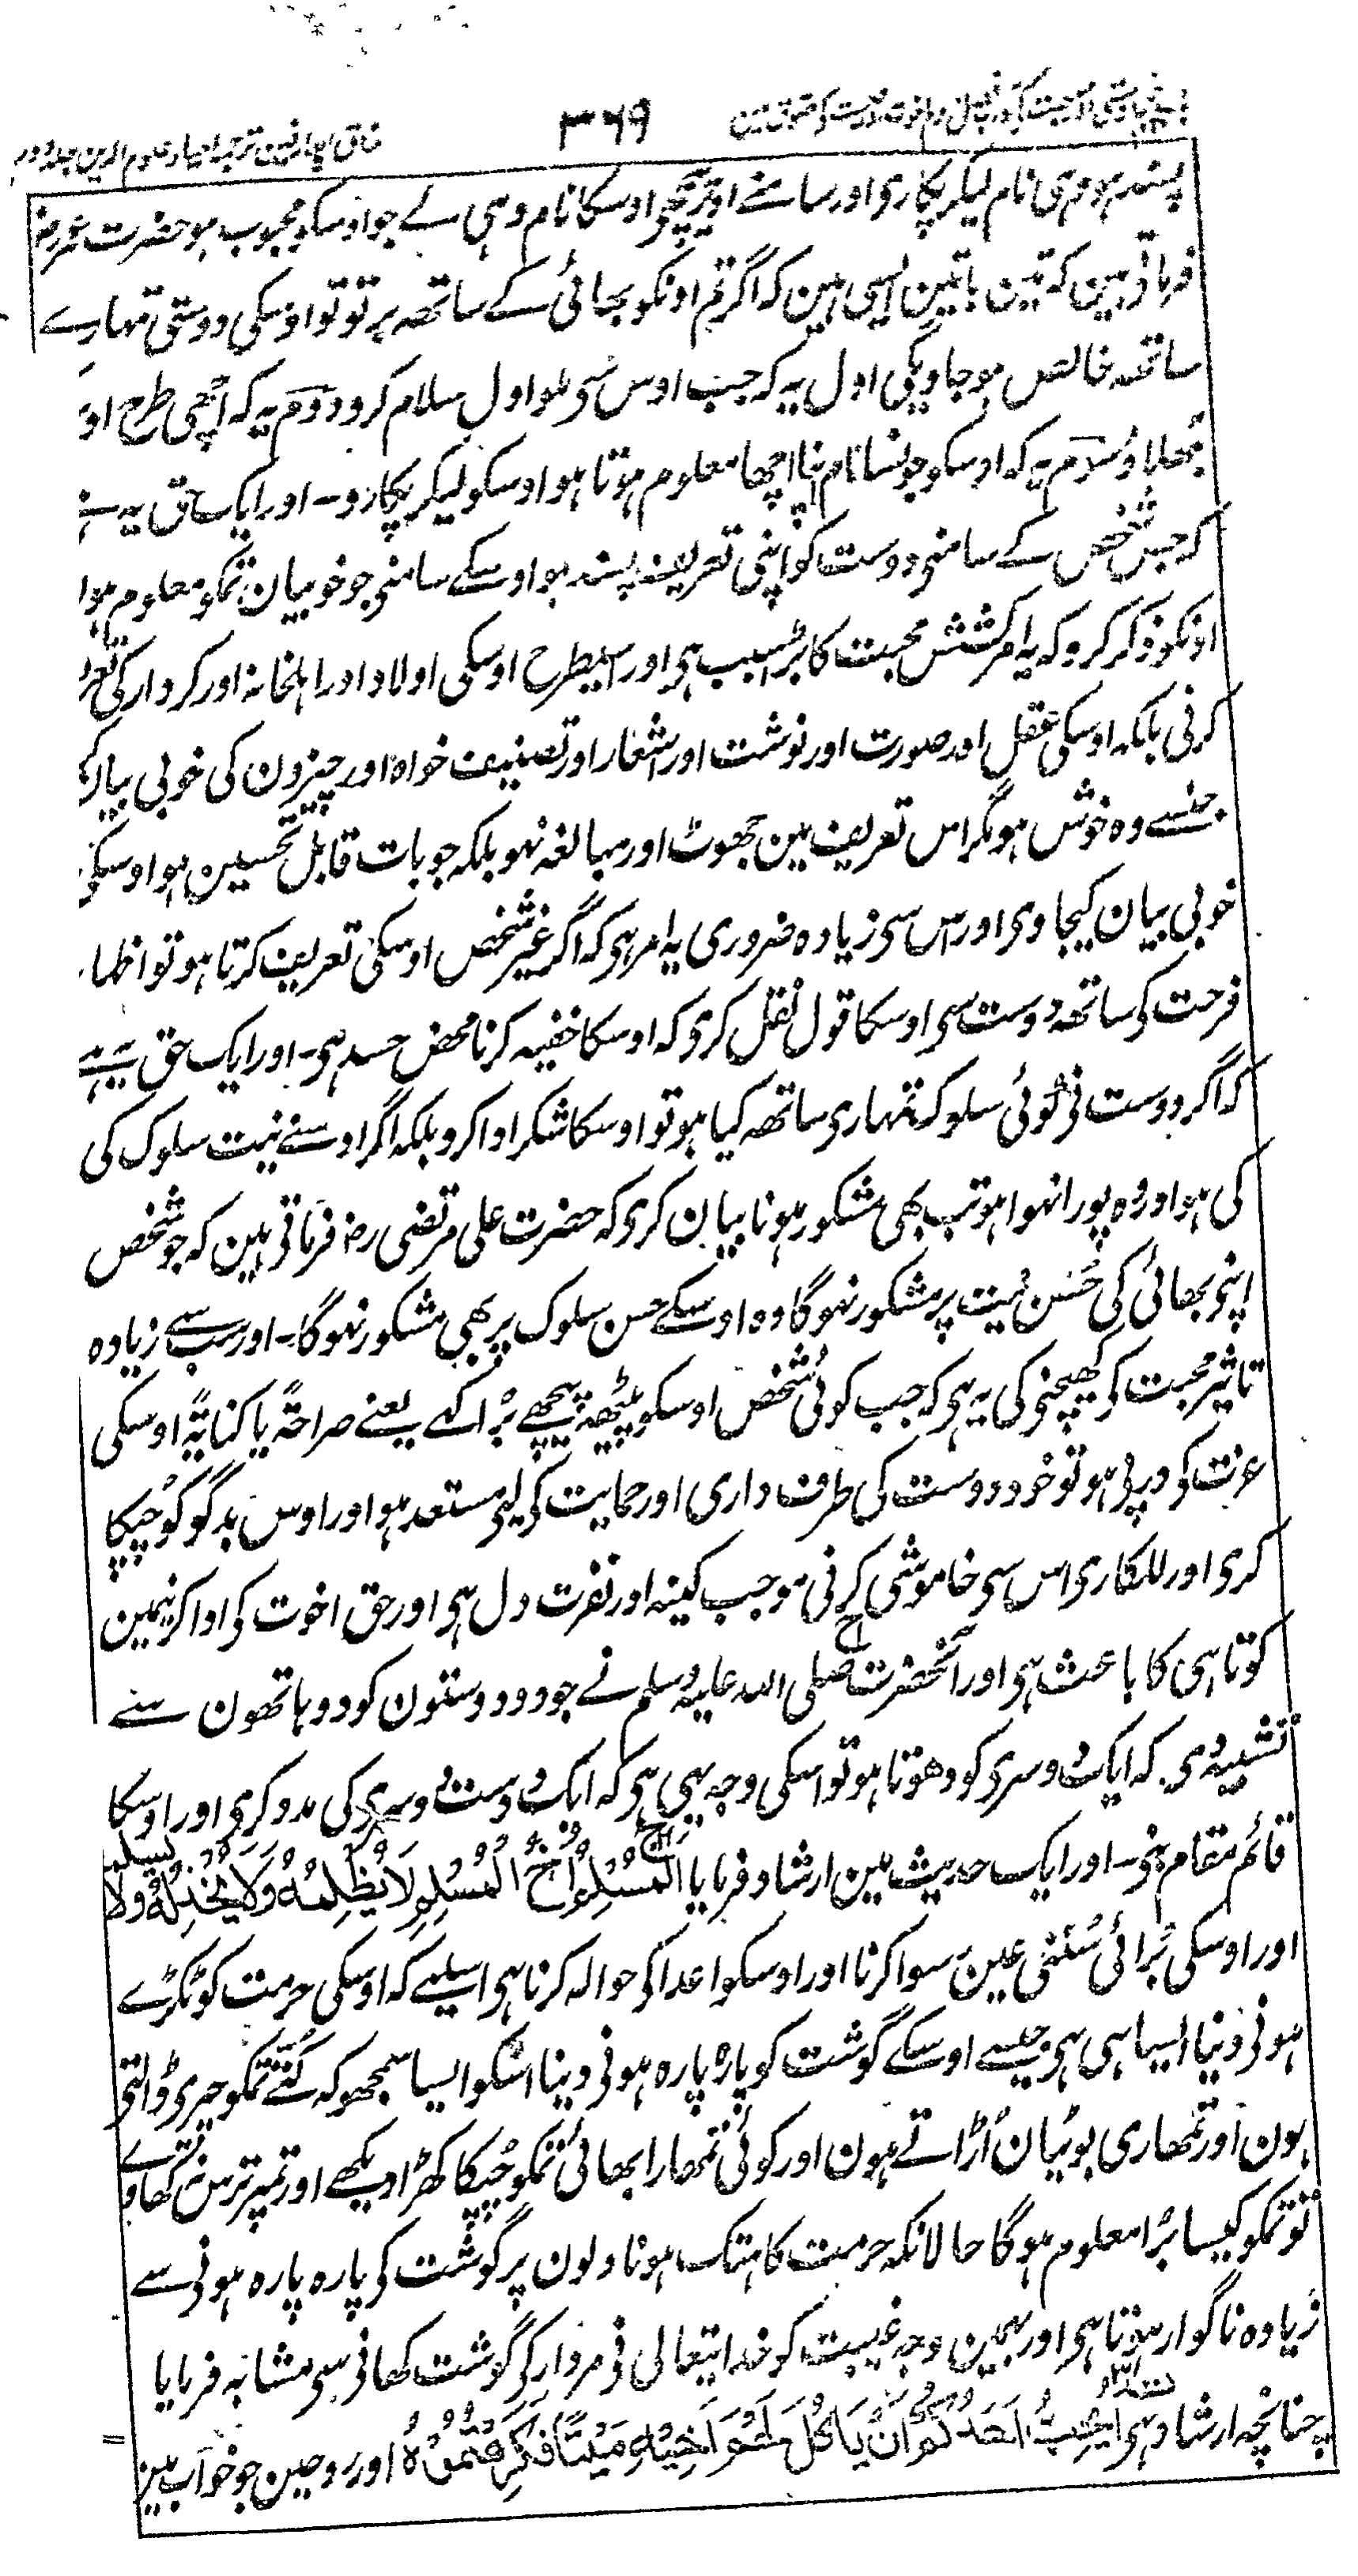 ۳۶۹
مذاق العارفین ترجمہ احیاء علوم الدین جلد دوم
پسند ہو وہی نام لیکر پکاری اور سامنے اور پیچھی اوسکا نام وہی لے جو اوسکو محبوب ہو حضرت عمر رضہ
فرماتی ہین کہ تین باتین ایسی ہین کہ اگر تم اونکو بھائی کے ساتھہ برتو تو اوسکی دوستی تمہارے
ساتھہ خالص ہو جاویگی اول یہ کہ جب اوس سی ملو اول سلام کرو دوم یہ کہ اچھی طرح اوسکو
بٹھلاؤ سوم یہ کہ اوسکو جونسا نام اپنا اچھا معلوم ہوتا ہو اوسکو لیکر پکارو۔ اور ایک حق یہ ہے
کہ جس شخص کے سامنی دوست کو اپنی تعریف پسند ہو اوسکے سامنی جو خوبیان تمکو معلوم ہون
اونکو ذکر کرو کہ یہ امر کشش محبت کا بڑا سبب ہی اور اسیطرح اوسکی اولاد اور اہلخانہ اور کردار کی تعریف
کرنی بلکہ اوسکی عقل اور صورت اور نوشت اور اشعار اور تصنیف خواہ اور چیزون کی خوبی بیان کرنی
جنسے وہ خوش ہو مگر اس تعریف مین جھوٹ اور مبالغہ نہو بلکہ جو بات قابل تحسین ہو اوسکی
خوبی بیان کیجاوی اور اس سی زیادہ ضروری یہ امر ہی کہ اگر غیر شخص اوسکی تعریف کرتا ہو تو اظہار
فرحت کی ساتھہ دوست سی اوسکا قول نقل کری کہ اوسکا خفیہ کرنا محض حسد ہی۔ اور ایک حق یہ ہے
کہ اگر دوست نی کوئی سلوک تمہاری ساتھہ کیا ہو تو اوسکا شکر ادا کرو بلکہ اگر اوسنے نیت سلوک کی
کی ہو اور وہ پورا نہوا ہو تب بھی مشکور ہونا بیان کری کہ حضرت علی مرتضی رضہ فرماتی ہین کہ جو شخص
اپنی بھائی کی حسن نیت پر مشکور نہوگا وہ اوسکے حسن سلوک پر بھی مشکور نہوگا۔ اور سب سے زیادہ
تاثیر محبت کی کھیچنی کی یہ ہی کہ جب کوئی شخص اوسکو پیٹھہ پیچھے بُرا کہے یعنے صراحۃً یا کنایۃً اوسکی
عزت کی درپی ہو تو خود دوست کی طرف داری اور حمایت کی لیی مستعد ہو اور اوس بدگو کو چپکا
کری اور للکاری اس سی خاموشی کرنی موجب کینہ اور نفرت دل ہی اور حق اخوت کی ادا کرنیمین
کوتاہی کا باعث ہی اور آنحضرت صلی اللہ علیہ وسلم نے جو دو دوستون کو دو ہاتھون سے
تشبیہ دی کہ ایک دوسری کو دھوتا ہو تو اسکی وجہ یہی ہی کہ ایک دوست دوسری کی مدد کری اور اوسکا
قائم مقام بنی۔ اور ایک حدیث مین ارشاد فرمایا اَلْمُسْلِمُ اَخُ الْمُسْلِمِ لَا یَظْلِمُهُ وَلَا یَخْذُلُهُ وَلَا یسلمه
اور اوسکی بُرائی سُننی عین رسوا کرنا اور اوسکو اعدا کی حوالہ کرنا ہی اسلیے کہ اوسکی حرمت کو ٹکڑے
ہونی دینا ایسا ہی ہی جیسے اوسکے گوشت کو پارہ پارہ ہونی دینا اسکو ایسا سمجھو کہ کُتّے تمکو چیری ڈالتی
ہون اور تمھاری بوٹیان اُڑاتے ہون اور کوئی تمھارا بھائی تمکو چپکا کھڑا دیکھے اور تمپر ترس نکھاوے
تو تمکو کیسا بُرا معلوم ہوگا حالانکہ حرمت کا ہتک ہونا دلون پر گوشت کی پارہ پارہ ہونی سے
زیادہ ناگوار ہوتا ہی اور بہمین وجہ غیبت کو خدایتعالی نی مردار کی گوشت کھانی سی مشابہ فرمایا
چنانچہ ارشاد ہی اَیُحِبُّ اَحَدُکُمْ اَنْ یَاکُلَ لَحْمَ اَخِیْهِ مَیْتًا فَکَرِهْتُمُوْهُ اور روحین جو خواب مین